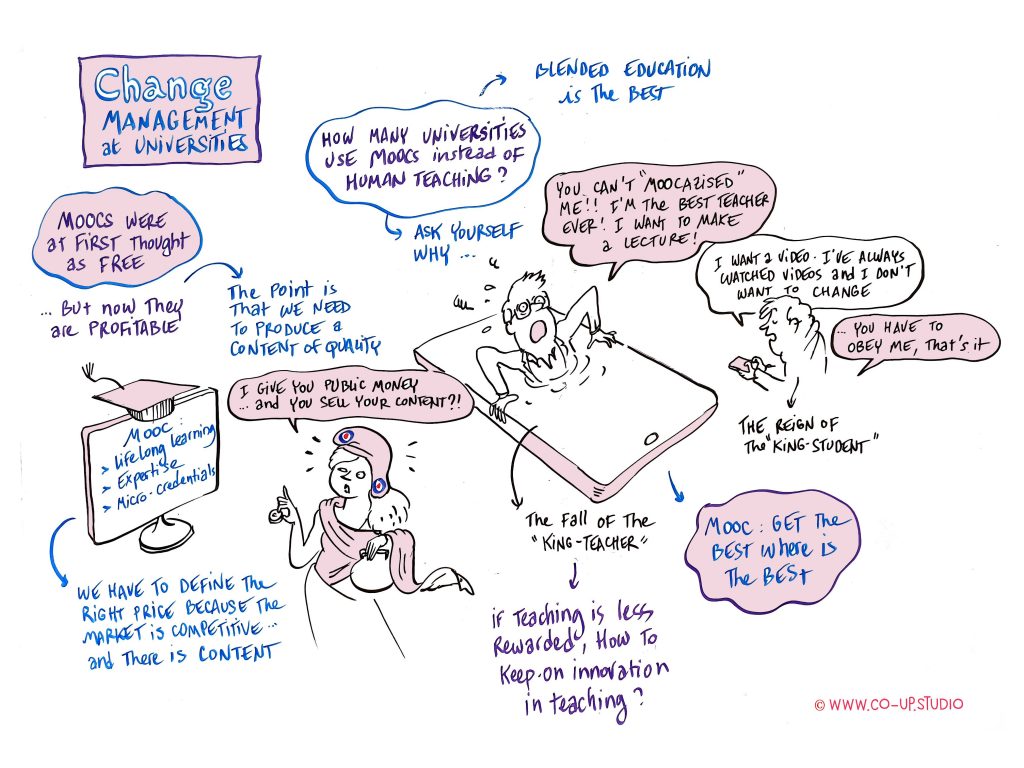 Change
MANAGEMENT
at UNIVERSITIES
BLENDED EDUCATION
is The BEST
HOW MANY UNIVERSITIES
USE MOOCS instead of
HUMAN TEACHING?
ASK YOURSELF
WHY ...
MOOCS WERE
at FIRST Thought
as FREE
... BUT now They
are PROFITABLE
The POINT is
That WE NEED
TO PRODUCE a
CONTENT OF QUALITY
YOU CAN'T "MOOCAZISED"
ME!! I'M The BEST TEACHER
EVER! I WANT TO MAKE
a LECTURE!
I WANT a VIDEO. I'VE ALWAYS
WATCHED VIDEOS and I DON'T
WANT TO CHANGE
... YOU HAVE TO
OBEY ME, That's it
THE REIGN OF
The "KING-STUDENT"
MOOC :
> Lifelong Learning
> Expertise
> Micro-credentials
I GIVE YOU PUBLIC MONEY
... and YOU SELL YOUR CONTENT?!
WE HAVE TO DEFINE The
RIGHT PRICE BECAUSE THE
MARKET is COMPETITIVE...
and There is CONTENT
The Fall OF The
"KING-TEACHER"
if Teaching is less
Rewarded, How To
Keep-on innovation
in teaching?
MOOC : GET The
BEST Where is
The BEST
© WWW.CO-UP.STUDIO